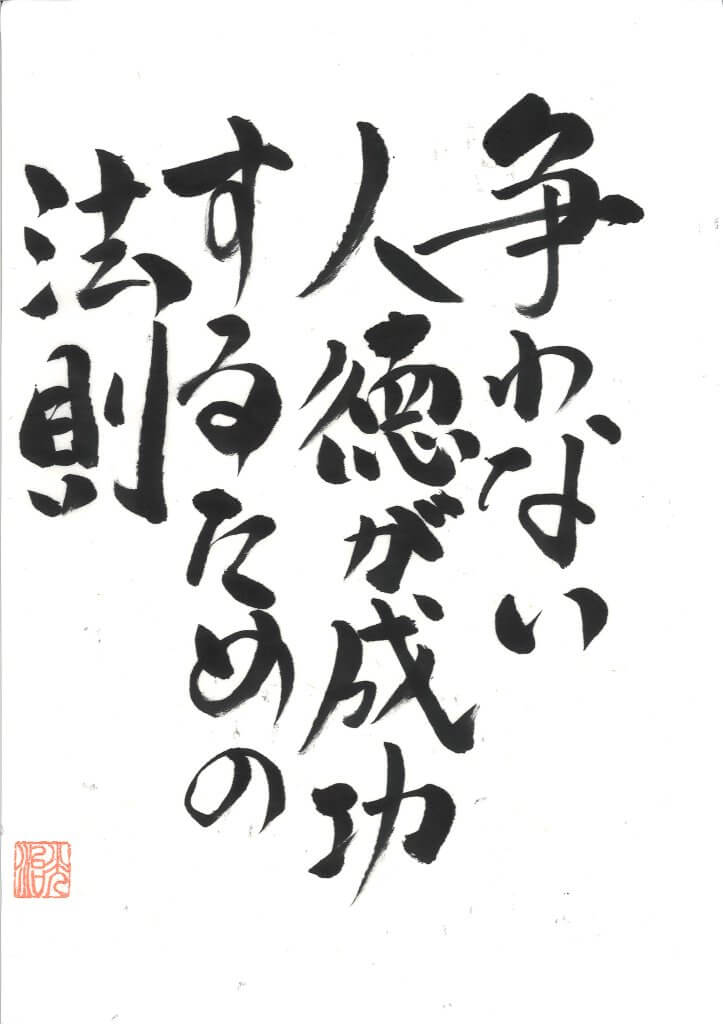 争わない
人徳が成功
するための
法則